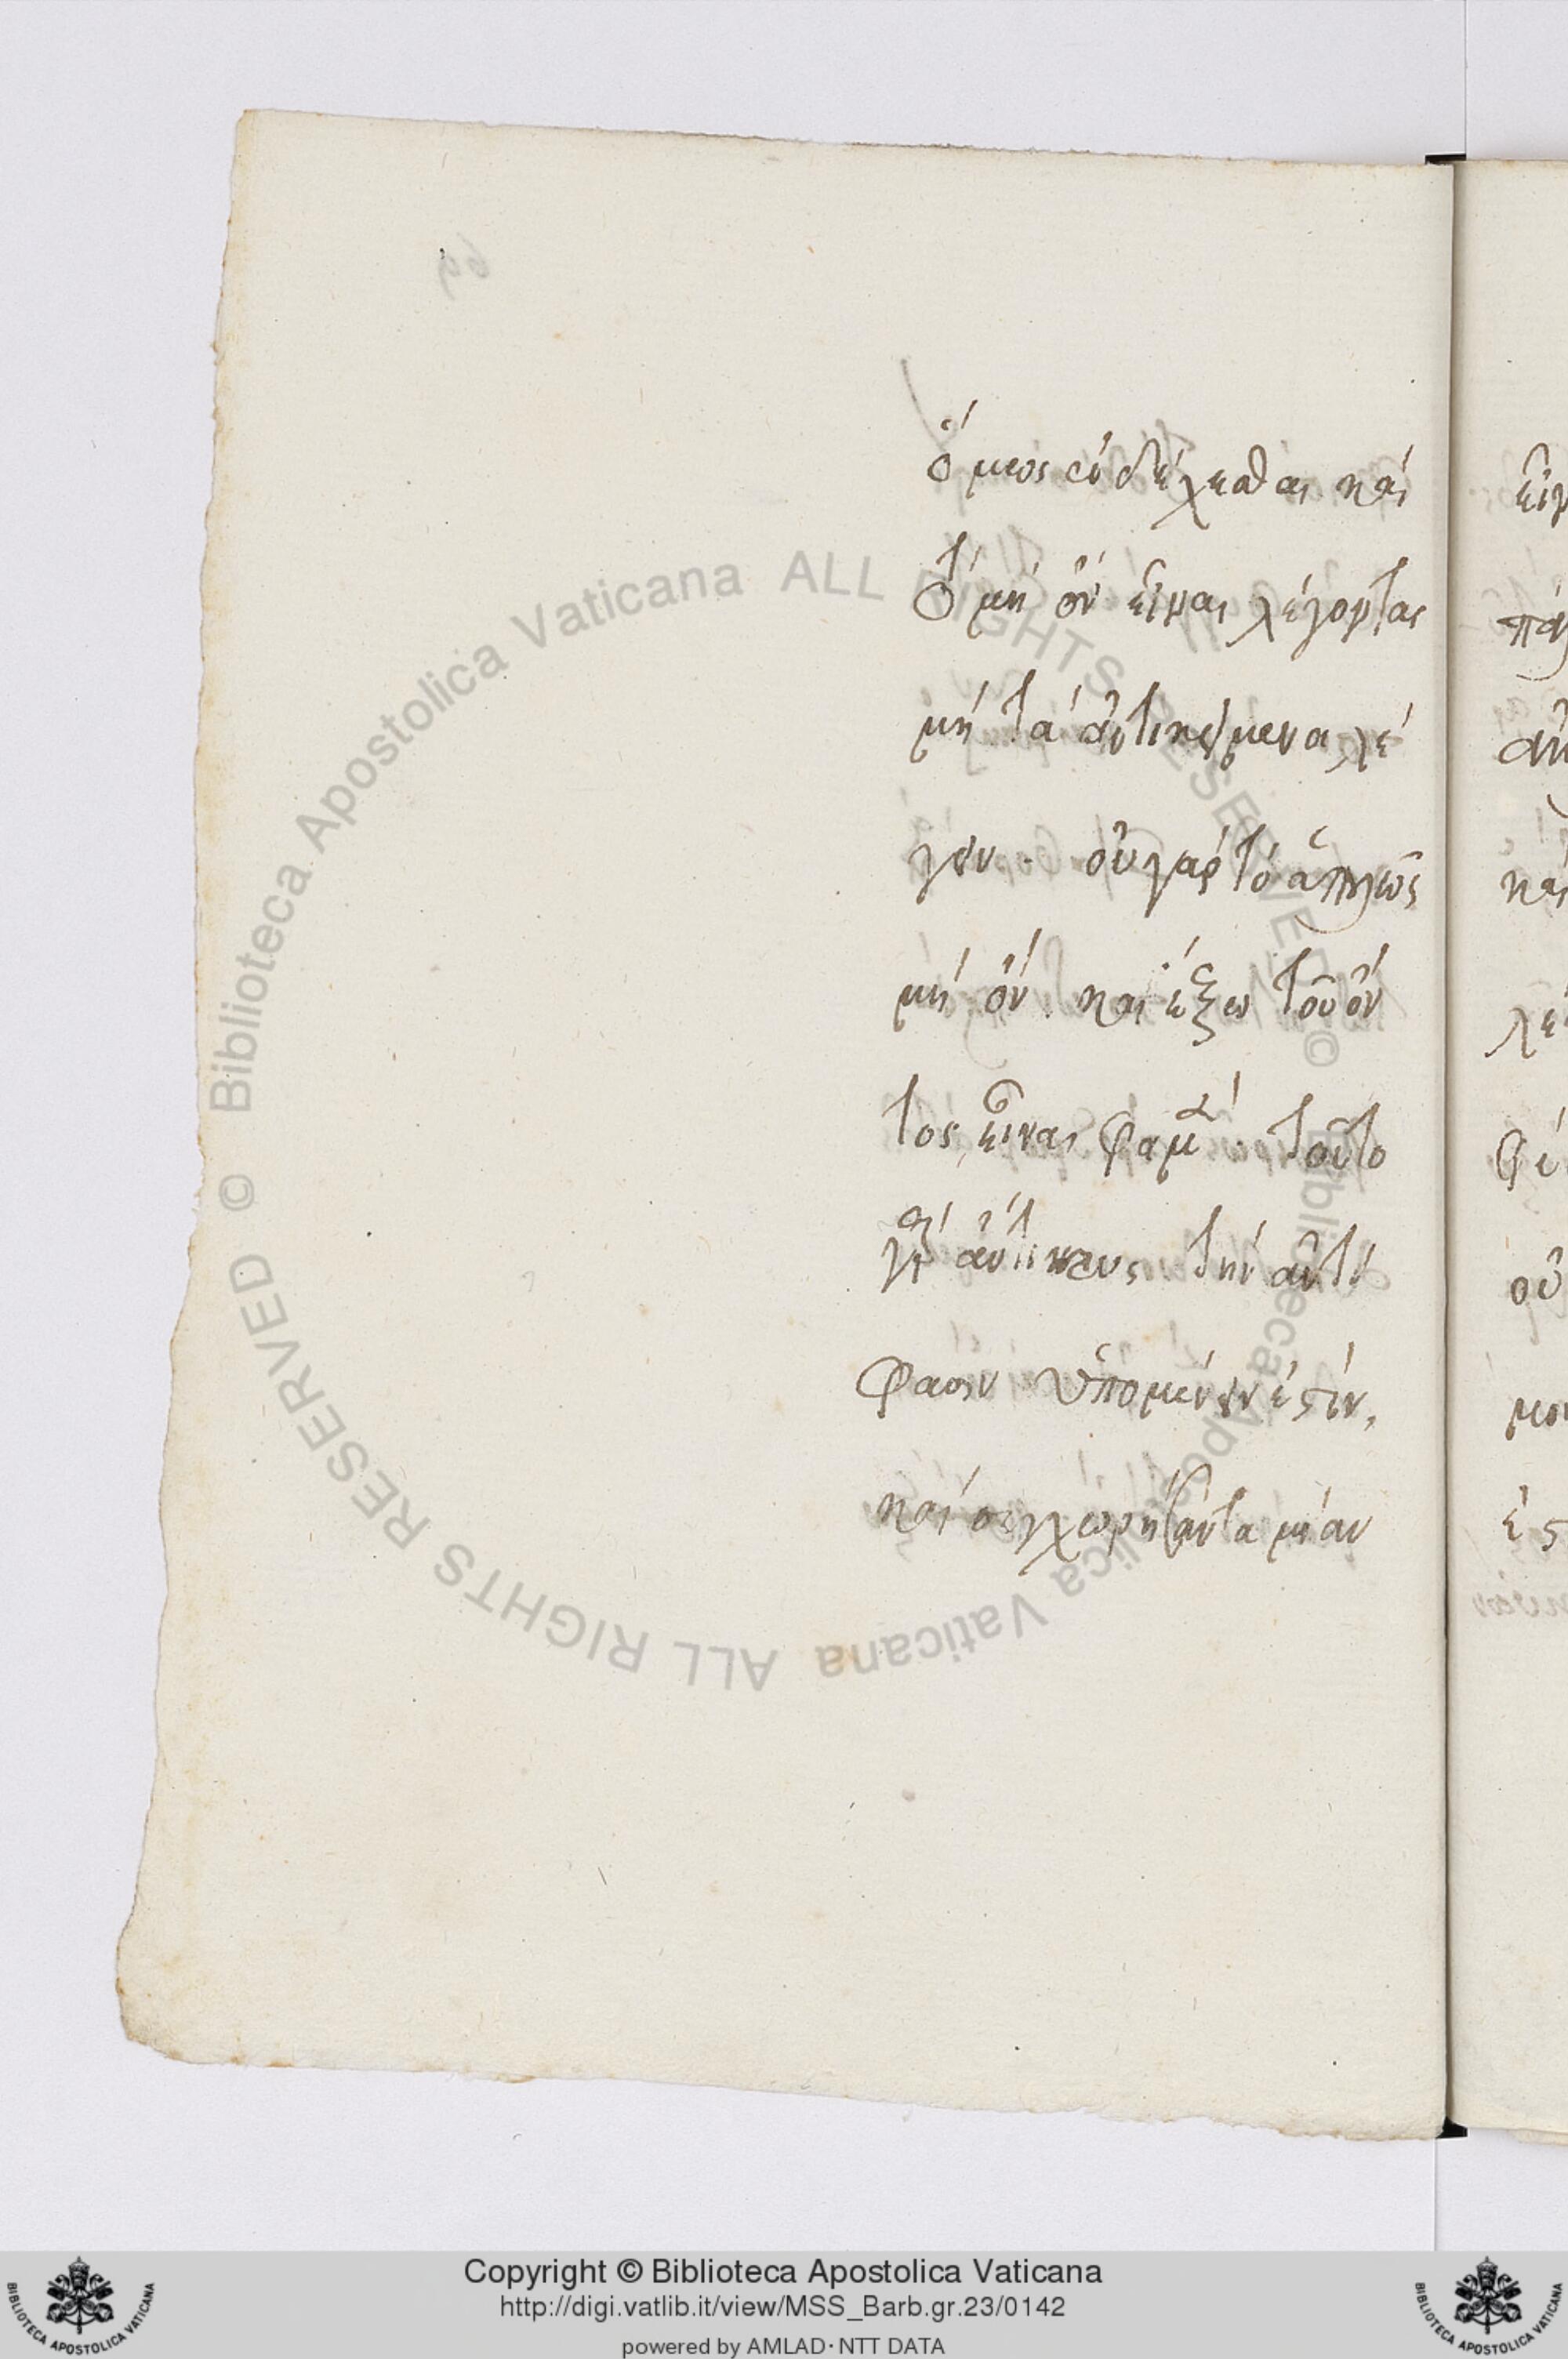 ὅμως ἐνδέχεσθαι καί
τό μή ὄν εἶναι λέγοντας
μή τά ἀντικείμενα λέ
γειν. οὐ γάρ τό ἁπλῶς
μή ὄν καί ἔξω τοῦ ὄν
τος εἶναι φαμέν. τοῦτο
γάρ
τήν ἀντί
φασιν ὑπομένειν ἐστίν,
καί
69
© Biblioteca Apostolica Vaticana ALL RIGHTS RESERVED © Biblioteca Apostolica Vaticana ALL RIGHTS RESERVED
Copyright © Biblioteca Apostolica Vaticana
http://digi.vatlib.it/view/MSS_Barb.gr.23/0142
powered by AMLAD · NTT DATA
BIBLIOTECA APOSTOLICA VATICANA
BIBLIOTECA APOSTOLICA VATICANA